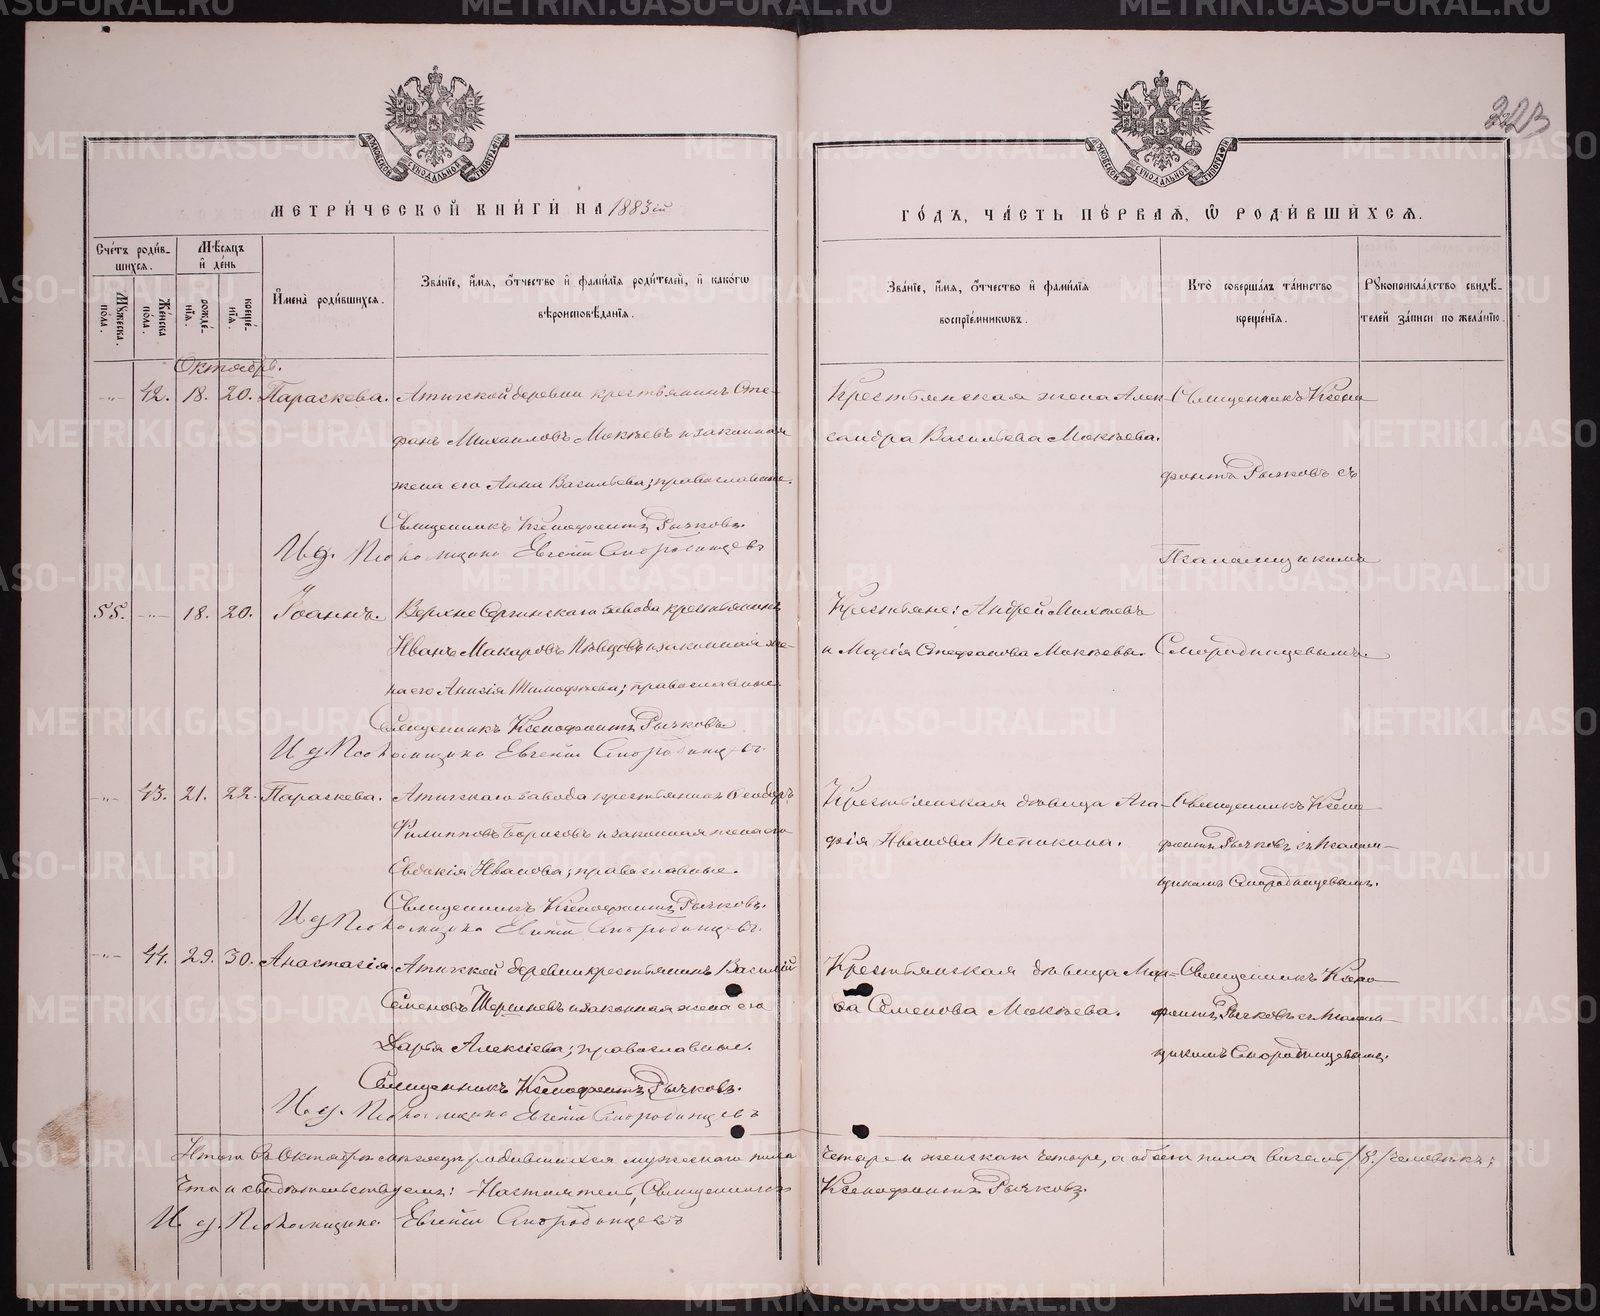 МЕТРИ́ЧЕСКОЙ КНИ́ГИ НА 1883й
ГО́ДЪ, ЧА́СТЬ ПЕ́РВАѦ, Ѡ҆ РОДИ́ВШИХСѦ.
323
Сче́тъ роди́вшихсѧ.
Мѣ́сѧцъ и҆ де́нь
Мꙋ́жеска по́ла.
Же́нска по́ла.
рожде́нїѧ.
креще́нїѧ.
И҆мена̀ роди́вшихсѧ.
Зва́нїе, и҆́мѧ, ѻ҆́тчество и҆ фами́лїѧ роди́телей, и҆ како́гѡ
вѣроисповѣ́данїѧ.
Зва́нїе, и҆́мѧ, ѻ҆́тчество и҆ фами́лїѧ
воспрїе́мникѡвъ.
Кто̀ соверша́лъ та́инство
креще́нїѧ.
Рꙋкоприкла́дство свидѣ́телей за́писи по жела́нїю.
Октябрь.
-„- 42. 18. 20. Параскева. Атигской деревни крестьянинъ Сте-
фанъ Михаиловъ Мокѣевъ и законная
жена его Анна Васильева; православные.
Священникъ Ксенофонтъ Рычковъ.
И. д. Псаломщика Евгеній Смородинцевъ
Крестьянская жена Алек-
сандра Васильева Мокѣева.
Священникъ Ксено
фонтъ Рычковъ съ
Псаломщикомъ
Смородинцевымъ
55. -„- 18. 20. Іоаннъ. Верхне Сергинскаго завода крестьянинъ
Иванъ Макаровъ Пѣвцовъ и законная же-
на его Анисія Тимофѣева; православные.
Священникъ Ксенофонтъ Рычковъ
И. д. Псаломщика Евгеній Смородинцевъ.
Крестьяне: Андрей Михѣевъ
и Марія Стефанова Мокѣевы.
-„- 43. 21. 22. Параскева. Атигскаго завода крестьянинъ Ѳеодоръ
Филипповъ Борисовъ и законная жена его
Евдокія Иванова; православные.
Священникъ Ксенофонтъ Рычковъ.
И. д. Псаломщика Евгеній Смородинцевъ.
Крестьянская дѣвица Ага-
фія Иванова
Священникъ Ксено
фонтъ Рычковъ съ Псалом-
щикомъ Смородинцевымъ.
-„- 44. 29. 30. Анастасія. Атигской деревни крестьянинъ Василій
Семеновъ и законная жена его
Дарья Алексіева; православные.
Священникъ Ксенофонтъ Рычковъ.
И. д. Псаломщика Евгеній Смородинцевъ
Крестьянская дѣвица Мар-
ѳа Семенова Мокѣева.
Священникъ Ксено
фонтъ Рычковъ съ Псалом
щикомъ Смородинцевымъ.
Итого въ Октябрѣ мѣсяцѣ родившихся мужескаго пола четыре и женскаго четыре, а обоего пола восемь /8/ человѣкъ;
Что и свидѣтельствуемъ: Настоятель, Священникъ Ксенофонтъ Рычковъ.
И. д. Псаломщика Евгеній Смородинцевъ
METRIKI.GASO-URAL.RU